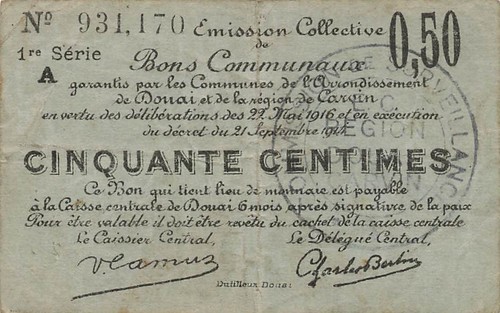 Nº 931,170 Emission Collective 0,50
1re Série de
A Bons Communaux
garantis par les Communes de l'Arrondissement
de Douai et de la région de Carvin
en vertu des délibérations des 22 Mai 1916 et en exécution
du décret du 21 Septembre
CINQUANTE CENTIMES
Ce Bon qui tient lieu de monnaie est payable
à la Caisse centrale de Douai 6 mois après signature de la paix
Pour être valable il doit être revêtu du cachet de la caisse centrale
Le Caissier Central, Le Délégué Central,
V. Camus Charles Bertin
Dutilleux Douai
SURVEILLANCE
REGION